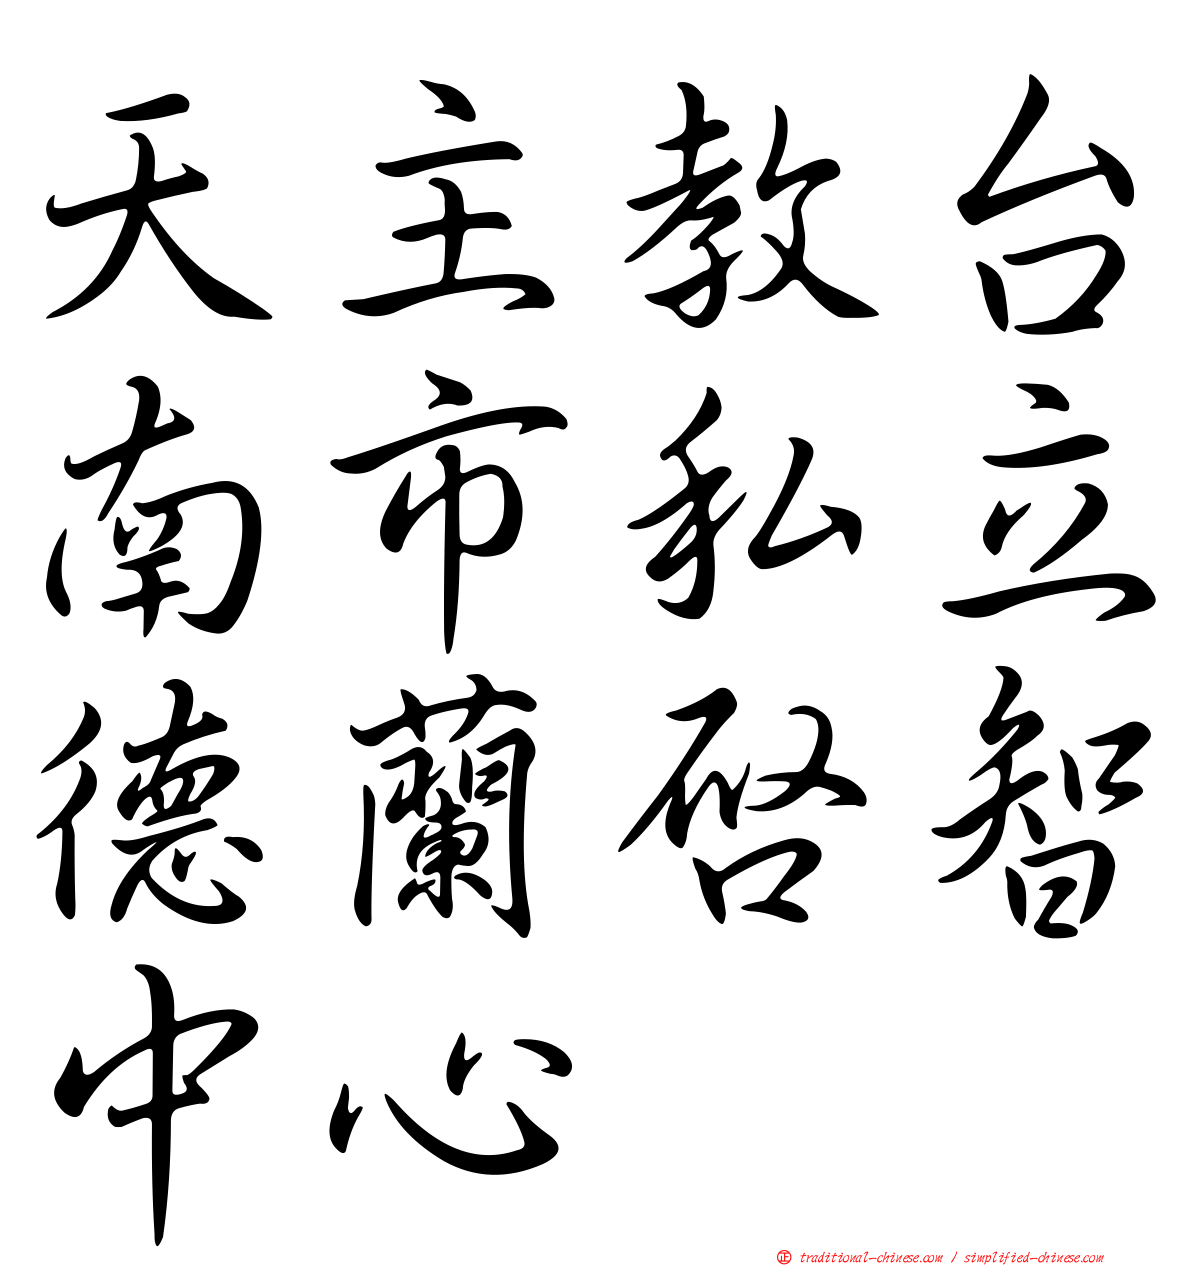 天主教台
南市私立
德蘭啓智
中心
㊣ traditional-chinese.com / simplified-chinese.com